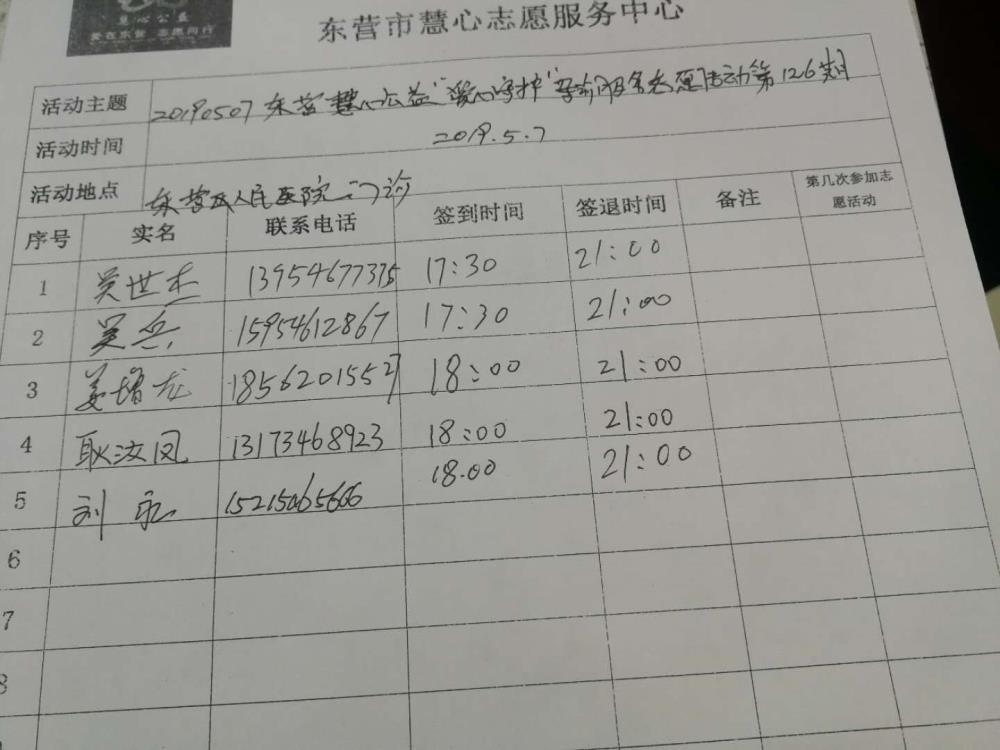 慧心公益
爱在东营 志愿同行
东营市慧心志愿服务中心
活动主题 20190507东营"慧心公益""爱心守护"导诊服务志愿活动第126期
活动时间 2019.5.7
活动地点 东营区人民医院门诊
序号 实名 联系电话 签到时间 签退时间 备注 第几次参加志愿活动
1 吴世杰 13954677375 17:30 21:00
2 吴兵 15954612867 17:30 21:00
3 姜增龙 18562015527 18:00 21:00
4 耿汝凤 13173468923 18:00 21:00
5 刘永 15215065606 18.00 21:00
6
7
8